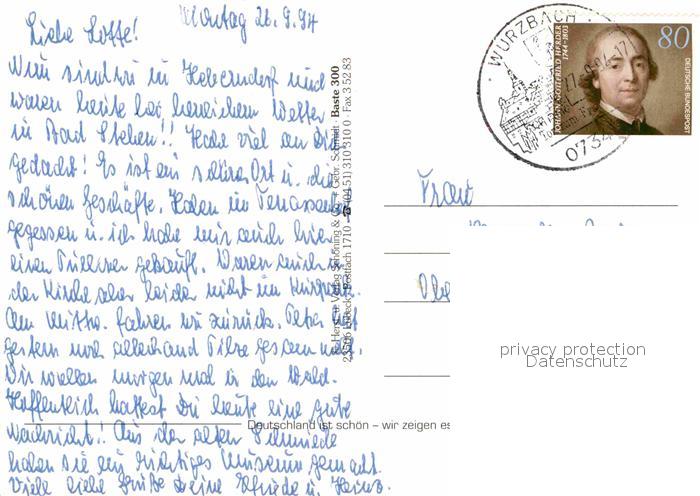 Montag 26.9.94
Liebe Lotte!
Wir sind in Heberndorf und
waren heute bei herrlichem Wetter
in Bad Steben!! Habe viel an Dich
gedacht! Es ist ein schöner Ort u. die
schönen Geschäfte. Haben im Terrassen
gegessen u. ich habe mir auch hier
einen Pullover gekauft. Waren auch in
der Kirche aber leider nicht im Kurpark.
Am Mittw. fahren wir zurück. Peter hat
gestern noch allerhand Pilze gesammelt.
Wir wollen morgen mal in den Wald.
Hoffentlich hattest Du heute eine gute
Nachricht! Aus der alten Schmiede
haben sie ein richtiges Museum gemacht.
Viele liebe Grüße Deine Elfriede u. Heinz.
Verlag Schöning & Co + Gebr. Schmidt Baste 300
23506 Lübeck, Postfach 1710 - ☎ (04 51) 310 310 0 · Fax 3 52 83
Deutschland ist schön – wir zeigen es
WURZBACH
0734
JOHANN GOTTFRIED HERDER
1744-1803
80
DEUTSCHE BUNDESPOST
Frau
privacy protection
Datenschutz